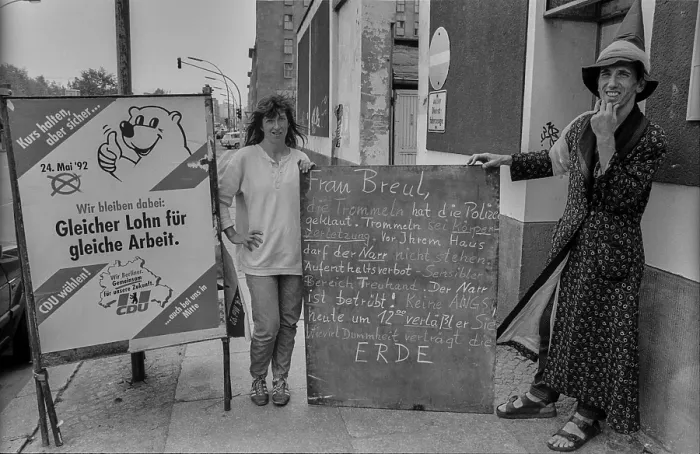 Kurs halten,
aber sicher...
24. Mai '92
Wir bleiben dabei:
Gleicher Lohn für
gleiche Arbeit.
CDU wählen!
Wir Berliner.
Gemeinsam
für unsere
Zukunft.
CDU
...auch bei uns in
Mitte
Frau Breul,
die Trommeln hat die Polizei
geklaut. Trommeln sei Körper-
verletzung. Vor Ihrem Haus
darf der Narr nicht stehen.
Aufenthaltsverbot - Sensibler
Bereich Treuhand. Der Narr
ist betrübt! Keine ANGST
heute um 12⁰⁰ verläßt er Sie
Wieviel Dummheit verträgt die
ERDE